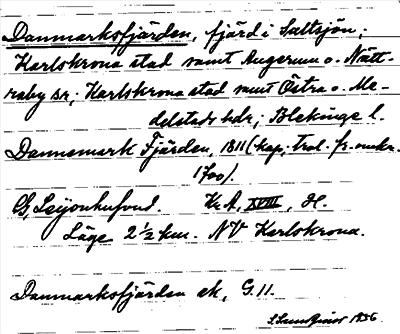 Danmarksfjärden, fjärd i Saltsjön;
Karlskrona stad samt Augerum o. Nätt-
raby sr; Karlskrona stad samt Östra o. Me-
delstads hdr, Blekinge l.
Dannemark Fjärden, 1811 (kop; trol. fr. omkr.
1700).
G. Leijonhufvud. Kr. A, XVIII, H.
Läge 2½ km. NV Karlskrona.
Danmarksfjärden ek, G.11.
1936